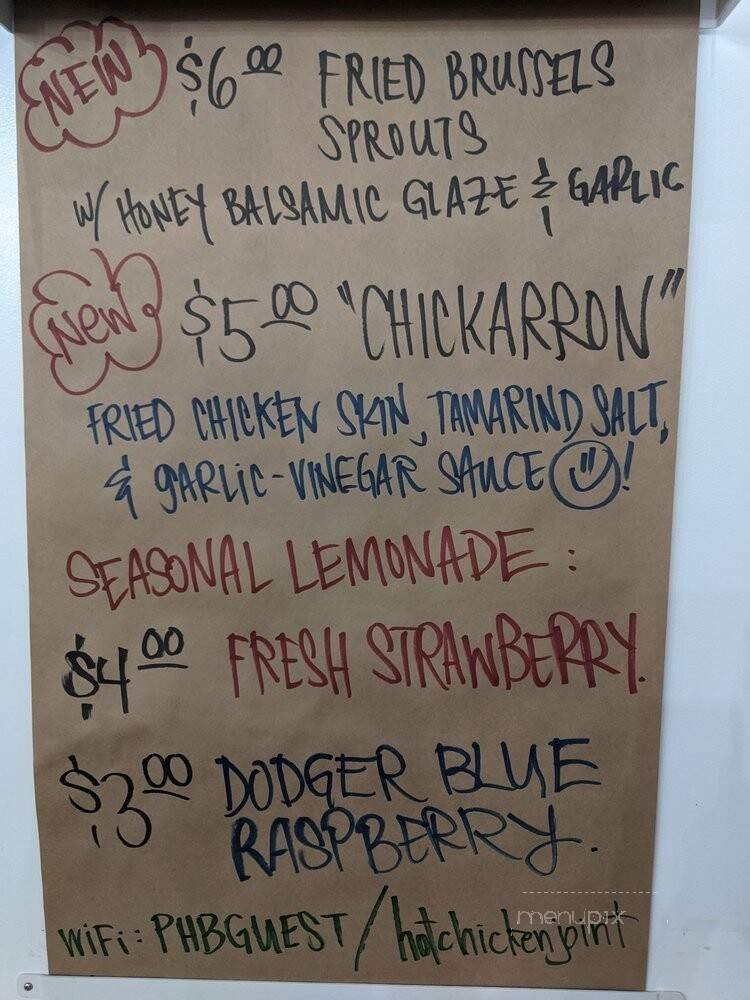 NEW $6.00 FRIED BRUSSELS
SPROUTS
W/ HONEY BALSAMIC GLAZE & GARLIC
New $5.00 "CHICKARRON"
FRIED CHICKEN SKIN, TAMARIND SALT,
& GARLIC-VINEGAR SAUCE !
SEASONAL LEMONADE :
$4.00 FRESH STRAWBERRY.
$3.00 DODGER BLUE
RASPBERRY.
menupix
WiFi: PHBGUEST/hotchickenjoint